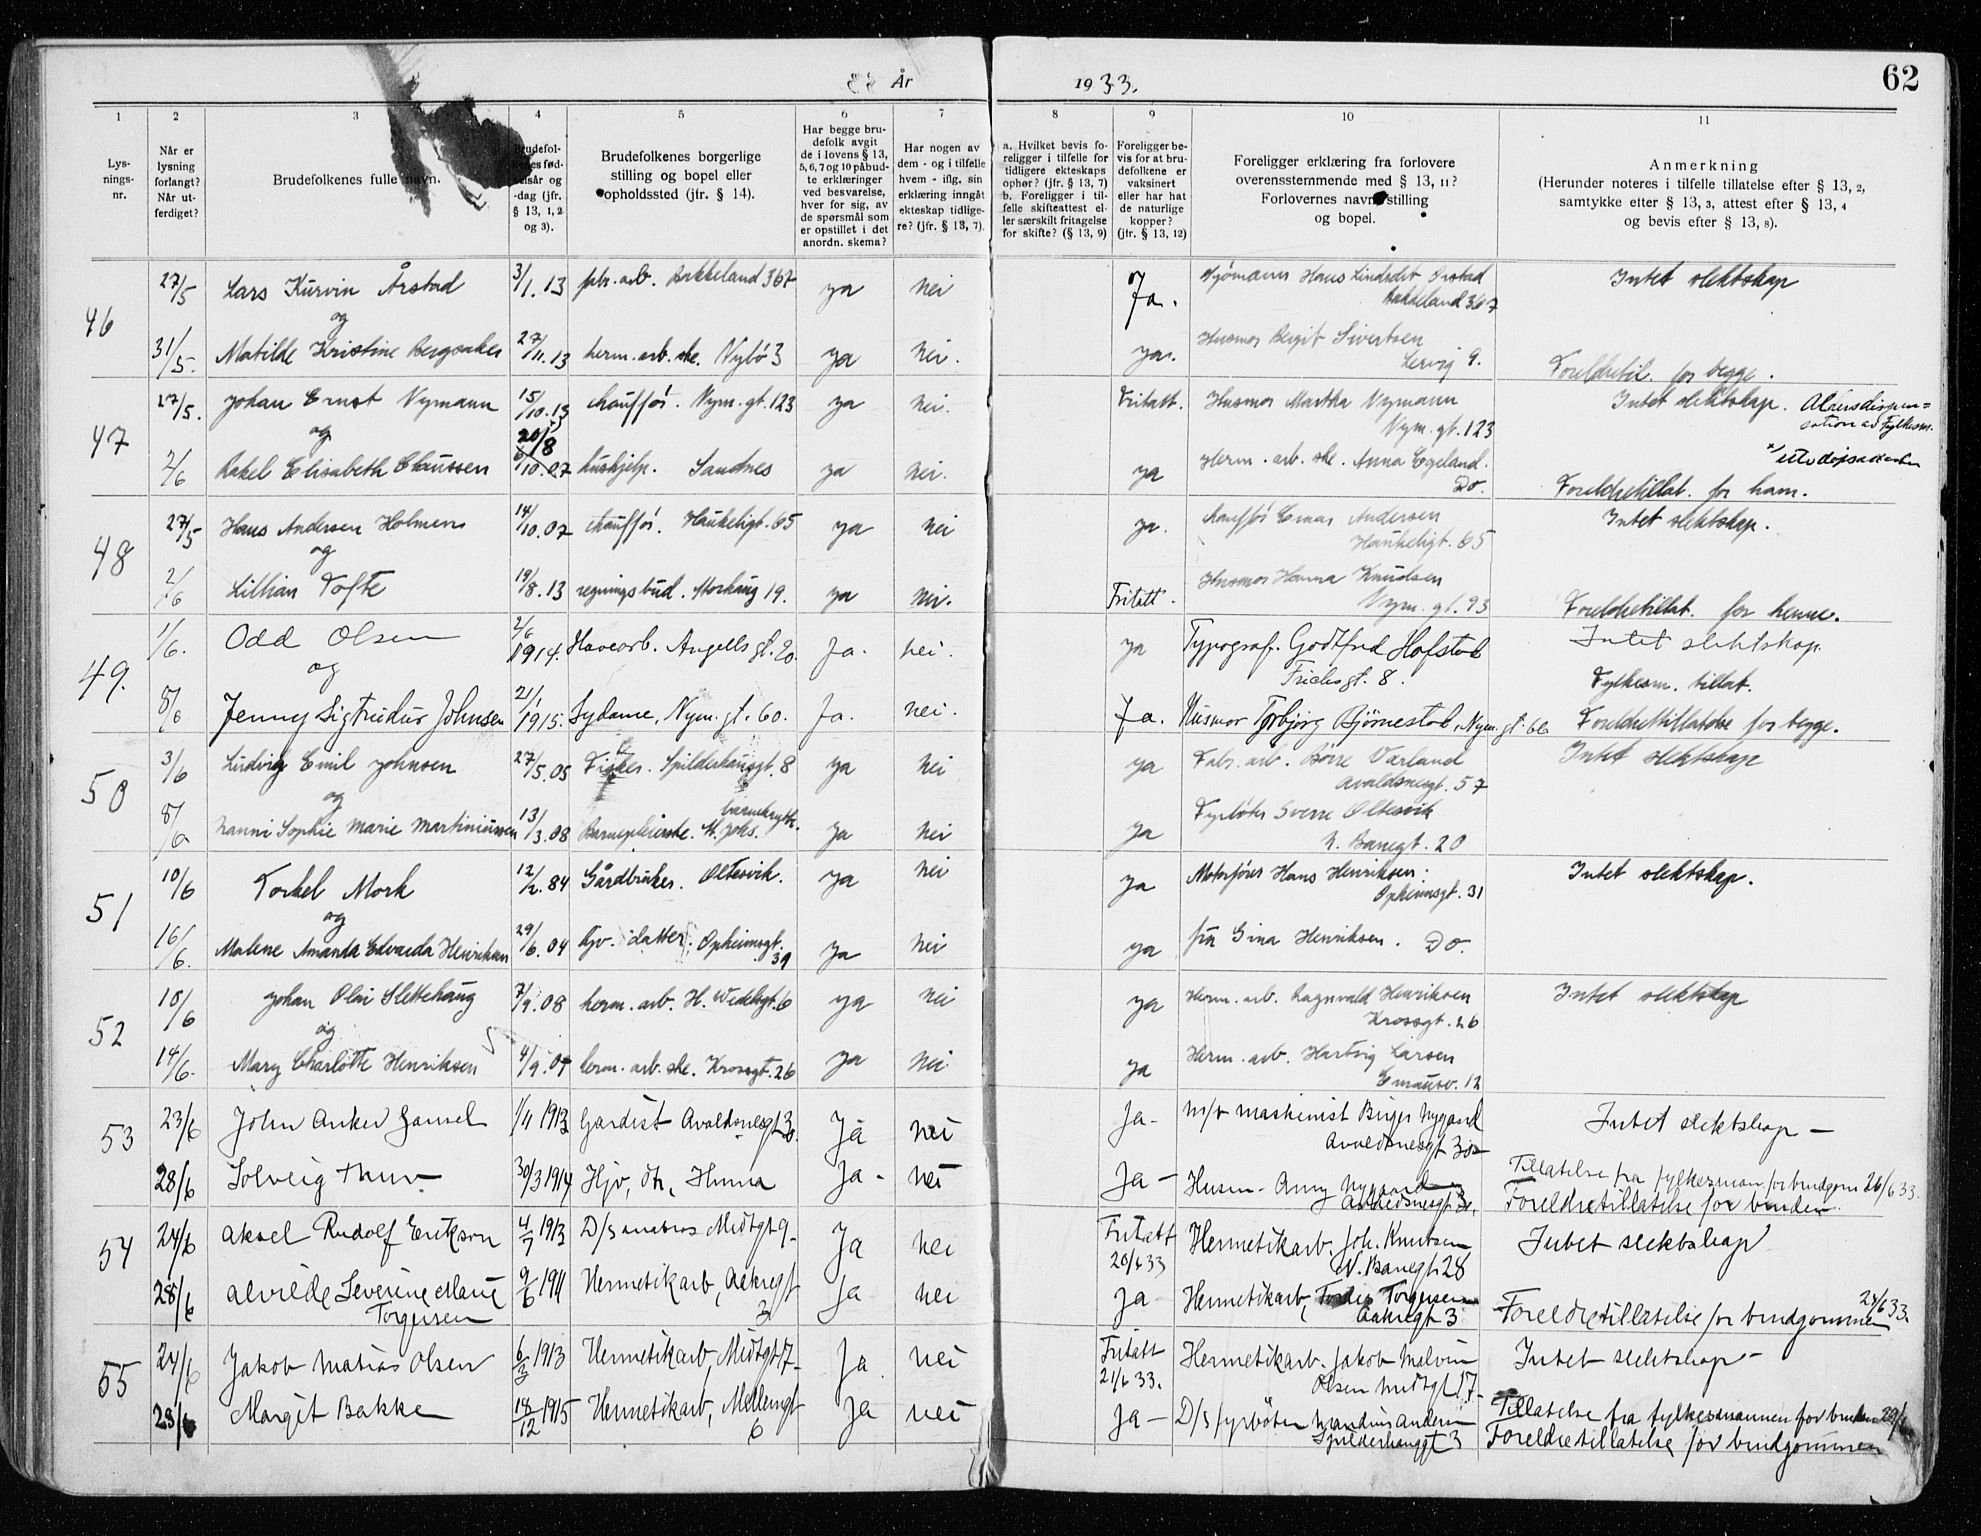 År 1933.
62
1 2 3 4 5 6 7 8 9 10 11
Lysnings-nr.
Når er lysning forlangt? Når utferdiget?
Brudefolkenes fulle navn.
Brudefolkenes fødselsår og -dag (jfr. § 13, 1, 2 og 3).
Brudefolkenes borgerlige stilling og bopel eller opholdssted (jfr. § 14).
Har begge brudefolk avgit de i lovens § 13, 5, 6, 7 og 10 påbudte erklæringer ved besvarelse, hver for sig, av de spørsmål som er opstillet i det anordn. skema?
Har nogen av dem - og i tilfelle hvem - iflg. sin erklæring inngått ekteskap tidligere? (jfr. § 13, 7).
a. Hvilket bevis foreligger i tilfelle for tidligere ekteskaps ophør? (jfr. § 13, 7) b. Foreligger i tilfelle skifteattest eller særskilt fritagelse for skifte? (§ 13, 9)
Foreligger bevis for at brudefolkene er vaksinert eller har hat de naturlige kopper? (jfr. § 13, 12)
Foreligger erklæring fra forlovere overensstemmende med § 13, 11? Forlovernes navn, stilling og bopel.
Anmerkning
(Herunder noteres i tilfelle tillatelse efter § 13, 2, samtykke etter § 13, 3, attest efter § 13, 4 og bevis efter § 13, 8).
46 27/5 Lars Kurvin Årstad 3/1.13 fabr. arb. Bakkeland 367 ya nei Ja. Sjømann Hans Lindedet Årstad Intet slektskap
og Bakkeland 367
31/5. Matilde Kristine Bergsaker 27/11.13 herm. arb. ske. Nybö 3 ya nei. ya. Husmor Bergit Sivertsen
Lervig 9. Foreldretil. for begge.
47 27/5. Johan Ernst Nymann 15/10.13 chauffør. Nym. gt. 123 ya nei. Fritatt. Husmor Martha Nymann Intet slektskap. Aldersdispen=
og 20/8 Nym. gt. 123 sation av Fylkesm.
2/6 Rakel Elisabeth Claussen 6/10.07 hushjelp. Sandnes ya nei. ya Herm. arb. ske. Anna Egeland.
Do. Foreldretillat. for ham.
48 27/5 Hans Andersen Holmen 14/10.07 chauffør. Haukeligt. 65 ya nei ya. chauffør Einar Andersen Intet slektskap.
og Haukeligt. 65
2/6 Lillian Tofte 19/8.13 regningsbud. Storhaug 19. ya nei. Fritatt. Husmor Hanna Knudsen
Nym. gt. 93 Foreldretillat. for henne.
49. 1/6. Odd Olsen 2/6 1914. Havearb. Angells gt. 20 Ja. nei. ya Typograf. Godtfred Hofstad Intet slektskap.
og Fredesgt. 8. Fylkesm. tillat.
8/6 Jenny Sigtrudur Johnsen 21/1 1915. Sydame, Nym. gt. 60. Ja. nei. Ja. Husmor Torbjørg Bjørnestad, Nym. gt. 60 Foreldretillatelse for begge.
50 3/6 Ludvig Emil Johnsen 27/5.05 Fisker. Spilderhausgt. 8 ya nei ya Fabr. arb. Børre Værland Intet slektskap
og Avaldsnesgt. 57
8/6 Nanni Sophie Marie Martiniussen 13/3.08 Barnepleierske. St. Johs. barnekrybbe. ya nei ya Fyrbøter Sverre Oltesvik
N. Banegt. 20
51 10/6 Torkel Mork 12/2.84 Gårdbruker. Oltesvik. ya nei ya Motorfører Hans Henriksen: Intet slektskap.
og Opheimsgt. 31
16/6. Malene Amanda Edvarda Henriksen 29/6.04 hjv. datter. Opheimsgt. 31 ya nei ya frú Gina Henriksen. Do.
52 10/6 Johan Olai Slettehaug 7/9.08 herm. arb. H. Wedelsgt. 6 ya nei ya Herm. arb. Ragnvald Henriksen Intet slektskap
og Krossgt. 26
14/6. Mary Charlotte Henriksen 4/9.07 herm. arb. ske. Krossgt. 26 ya nei ya Herm. arb. Hartvig Larsen
Emausv. 12
53 23/6 John Anker Jansel 1/11 1913 Gardist Avaldsnesgt 30. Ja nei Ja- m/v maskinist Birger Nygaard Intet slektskap -
Avaldsnesgt 30-
28/6 Solveig Thuv 30/3 1914 Hjv, dtr, Hinna Ja- nei Ja- Husm. Anny Nygaard Tillatelse fra fylkesman for brudgom 26/6 33.
Avaldsnesgt 30, Foreldretillatelse for bruden.
54 24/6 Aksel Rudolf Erikson 4/7 1913 D/s Midtgt 9- Ja nei Fritatt Hermetikarb. Joh. Knutsen Intet slektskap
20/6 33 N. Banegt 28
28/6 Alvilde Severine Marie 9/6 1911 Hermetikarb, Aakregt Ja nei Ja Hermetikarb, Tordis Torgersen 24/6 33.
Torgersen 3 Aakregt 3 Foreldretillatelse for brudgommen
55 24/6 Jakob Matias Olsen 6/3 1913 Hermetikarb, Midtgt 17- Ja nei Fritatt Hermetikarb. Jakob Malvin Intet slektskap -
21/6 33. Olsen Midtgt 17-
28/6 Margit Bakke 18/12 1915 Hermetikarb, Møllengt Ja nei Ja- D/s fyrbøter Andersen Tillatelse fra fylkesmannen for bruden 20/6
6 Spilderhausgt 3 Foreldretillatelse for brudgommen